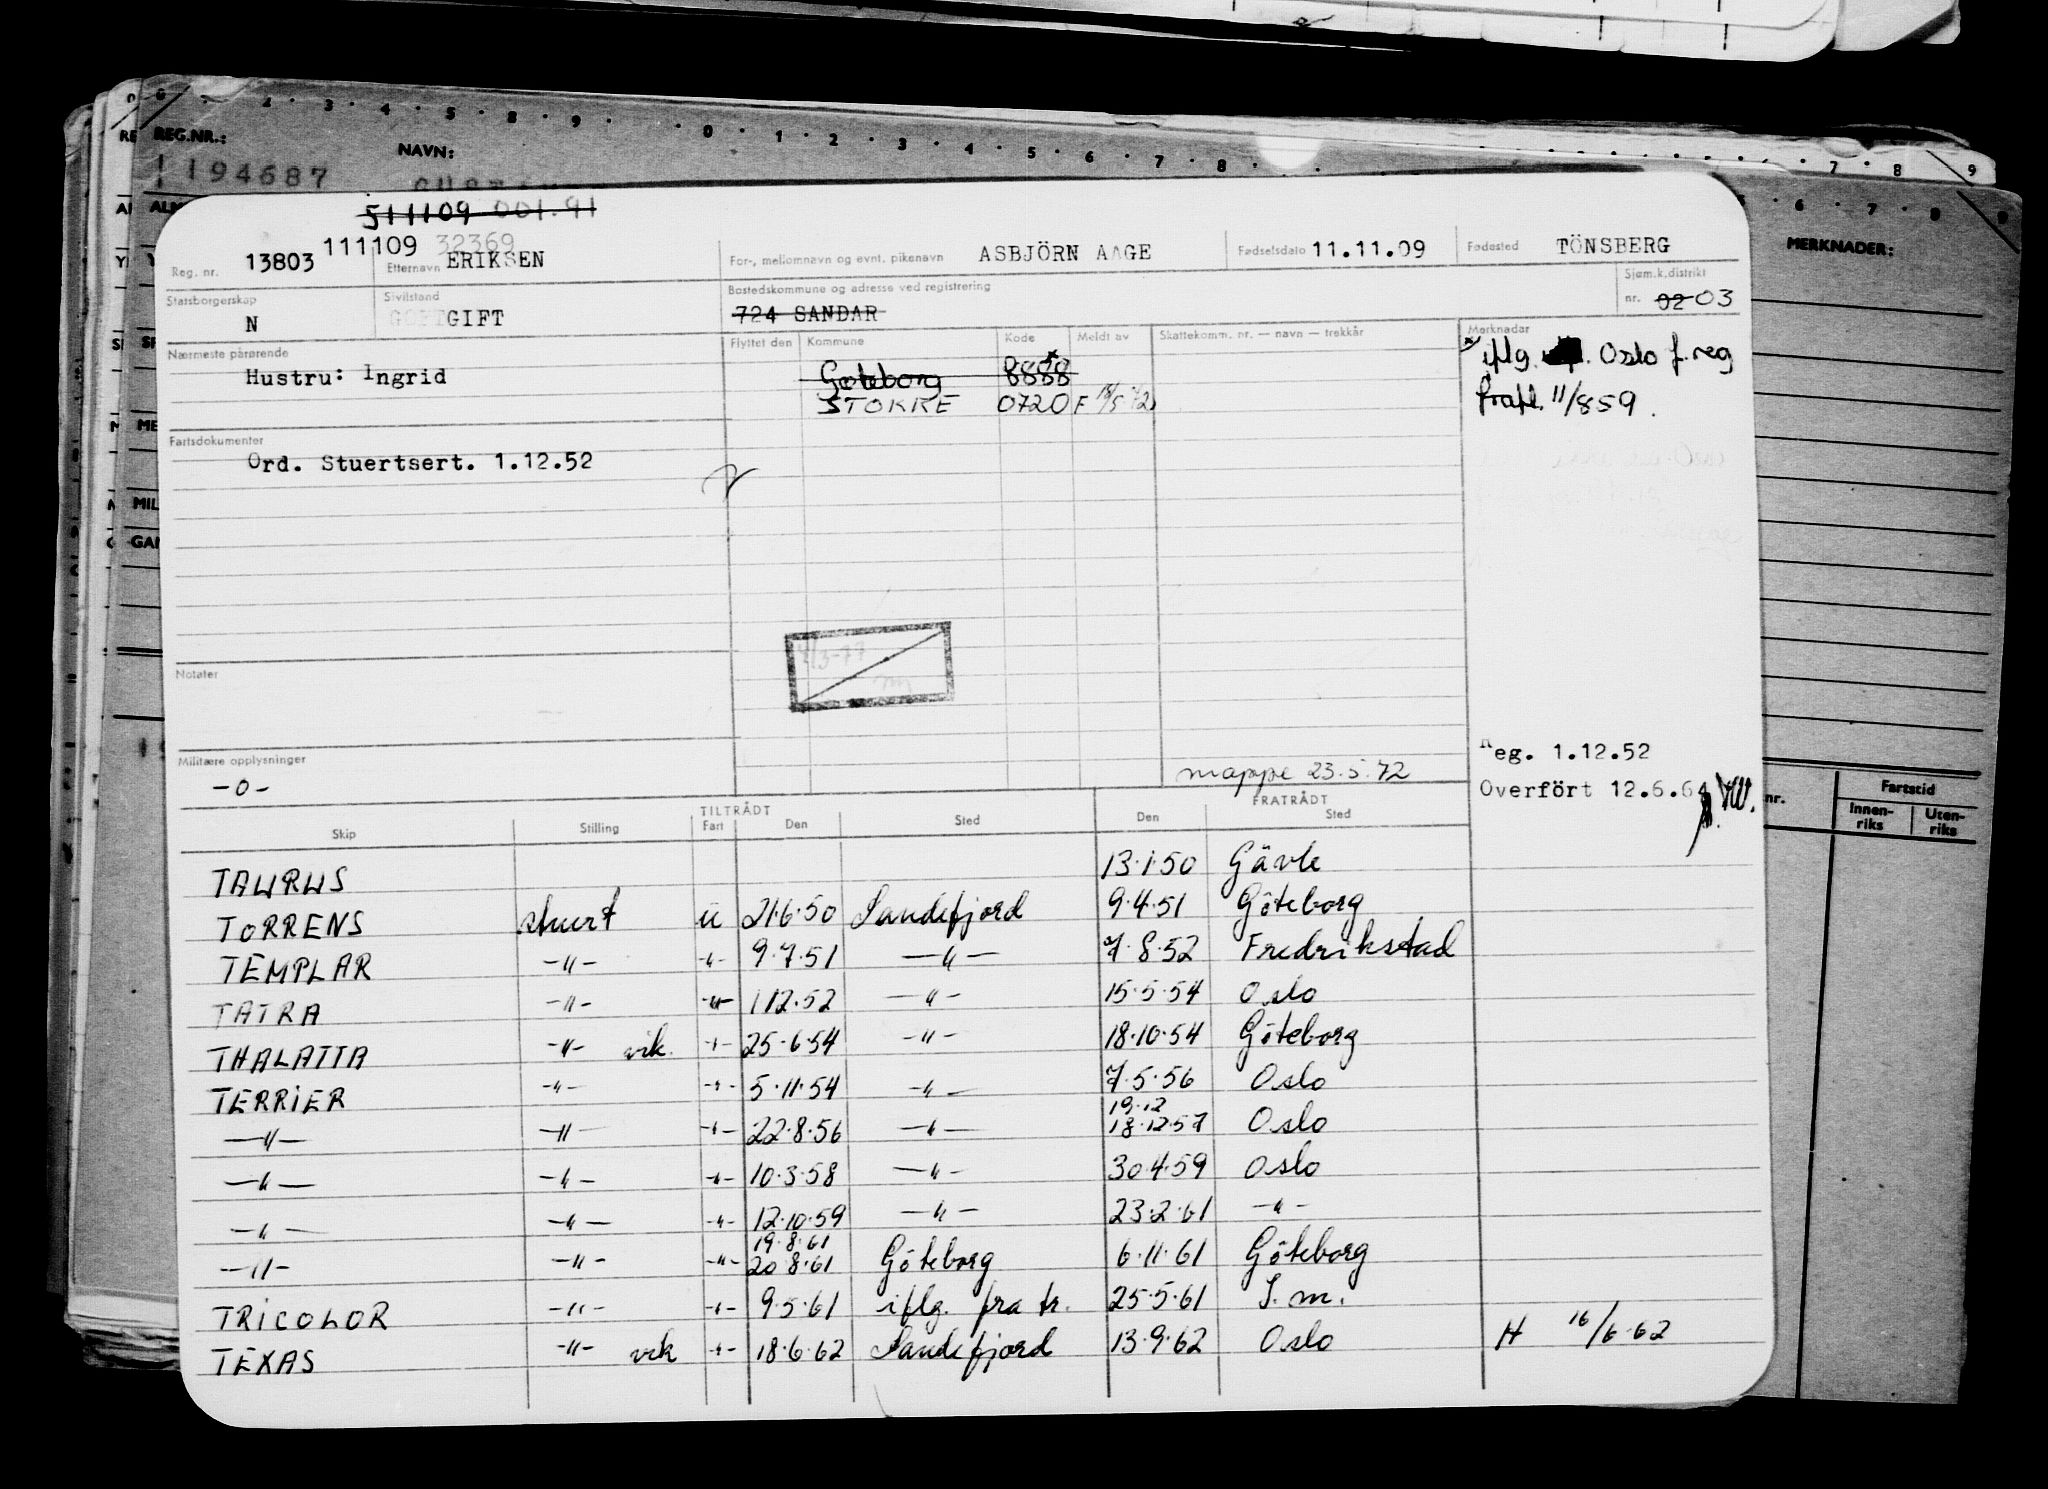 2 3 4 5 8 9 0 1 2 3 4 5 6 7 8 7 8 9
REG.NR.:
NAVN:
194687
MERKNADER:
511109 001.91
111109 32369
Reg. nr. 13803 Etternavn ERIKSEN For-, mellomnavn og evnt. pikenavn ASBJÖRN AAGE Fødselsdato 11.11.09 Fødested TÖNSBERG
Statsborgerskap N Sivilstand GIFT Bostedskommune og adresse ved registrering 724 SANDAR Sjøm.k.distrikt nr. 02 03
Nærmeste pårørende
Hustru: Ingrid
Flyttet den Kommune Kode Meldt av Skattekomm. nr. — navn — trekkår Merknader
Göteborg 8888
STOKKE 0720 F 15/5 72
iflg. Oslo f.reg
frafl. 11/859.
Fartsdokumenter
Ord. Stuertsert. 1.12.52
Notater
4/3-77
Militære opplysninger
-0-
mappe 23.5.72
Reg. 1.12.52
Overfört 12.6.64
TILTRÅDT FRATRÅDT
Skip Stilling Fart Den Sted Den Sted
nr. Fartstid
Innenriks Utenriks
TAURUS 13.1.50 Gävle
TORRENS stuert u 21.6.50 Sandefjord 9.4.51 Göteborg
TEMPLAR -"- -"- 9.7.51 -"- 7.8.52 Fredrikstad
TATRA -"- -"- 1 12.52 -"- 15.5.54 Oslo
THALATTA -"- vik. -"- 25.6.54 -"- 18.10.54 Göteborg
TERRIER -"- -"- 5.11.54 -"- 7.5.56 Oslo
19.12
-"- -"- -"- 22.8.56 -"- 18.12.57 Oslo
-"- -"- -"- 10.3.58 -"- 30.4.59 Oslo
-"- -"- -"- 12.10.59 -"- 23.2.61 -"-
19.8.61
-"- -"- -"- 20.8.61 Göteborg 6.11.61 Göteborg
TRICOLOR -"- -"- 9.5.61 iflg. fra tr. 25.5.61 S.m.
TEXAS -"- vik -"- 18.6.62 Sandefjord 13.9.62 Oslo H 16/6.62